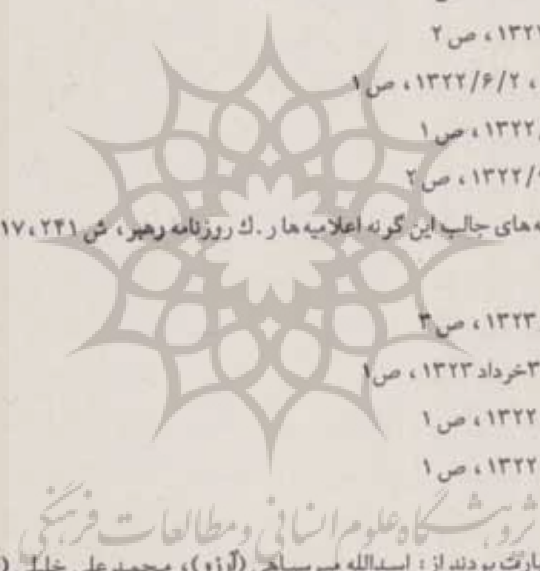 ۱۳۲۲ ، ص ۲
، ۱۳۲۲/۶/۲ ، ص ۱
۱۳۲۲ ، ص ۱
۱۳۲۲/ ، ص ۲
های جالب این گونه اعلامیه ها ر.ك روزنامه رهبر ، ش ۲۴۱ ، ۱۷
۱۳۲۳ ، ص ۳
۳خرداد ۱۳۲۳ ، ص ۱
۱۳۲۲ ، ص ۱
۱۳۲۲ ، ص ۱
پژوهشگاه علوم انسانی و مطالعات فرهنگی
بودند از : اسدالله میرسپاهی (آرزو) ، محمدعلی خلیلی (